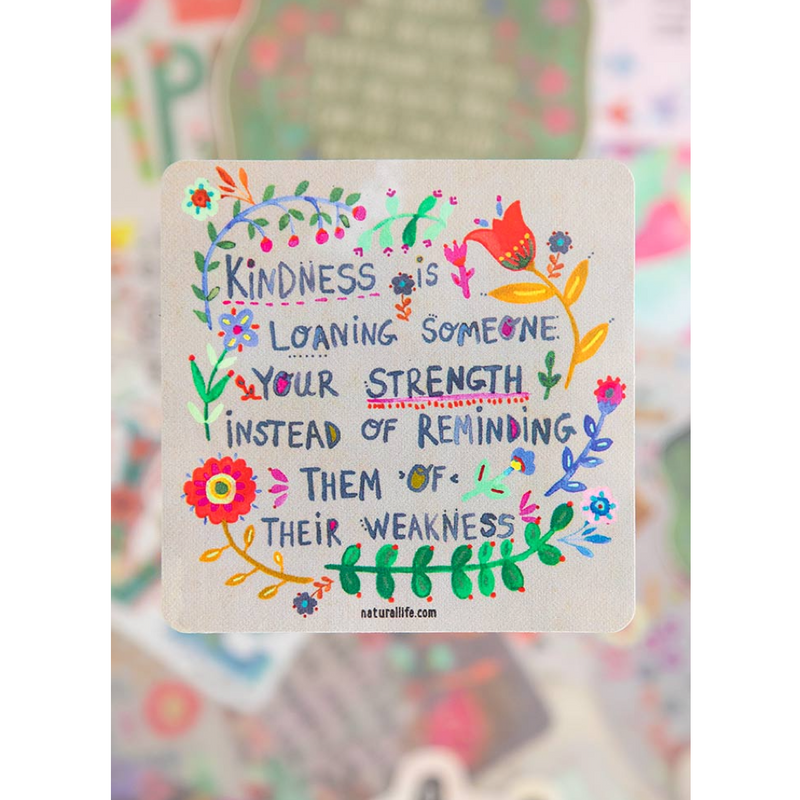 KINDNESS IS
LOANING SOMEONE
YOUR STRENGTH
INSTEAD OF REMINDING
THEM OF
THEIR WEAKNESS
naturallife.com